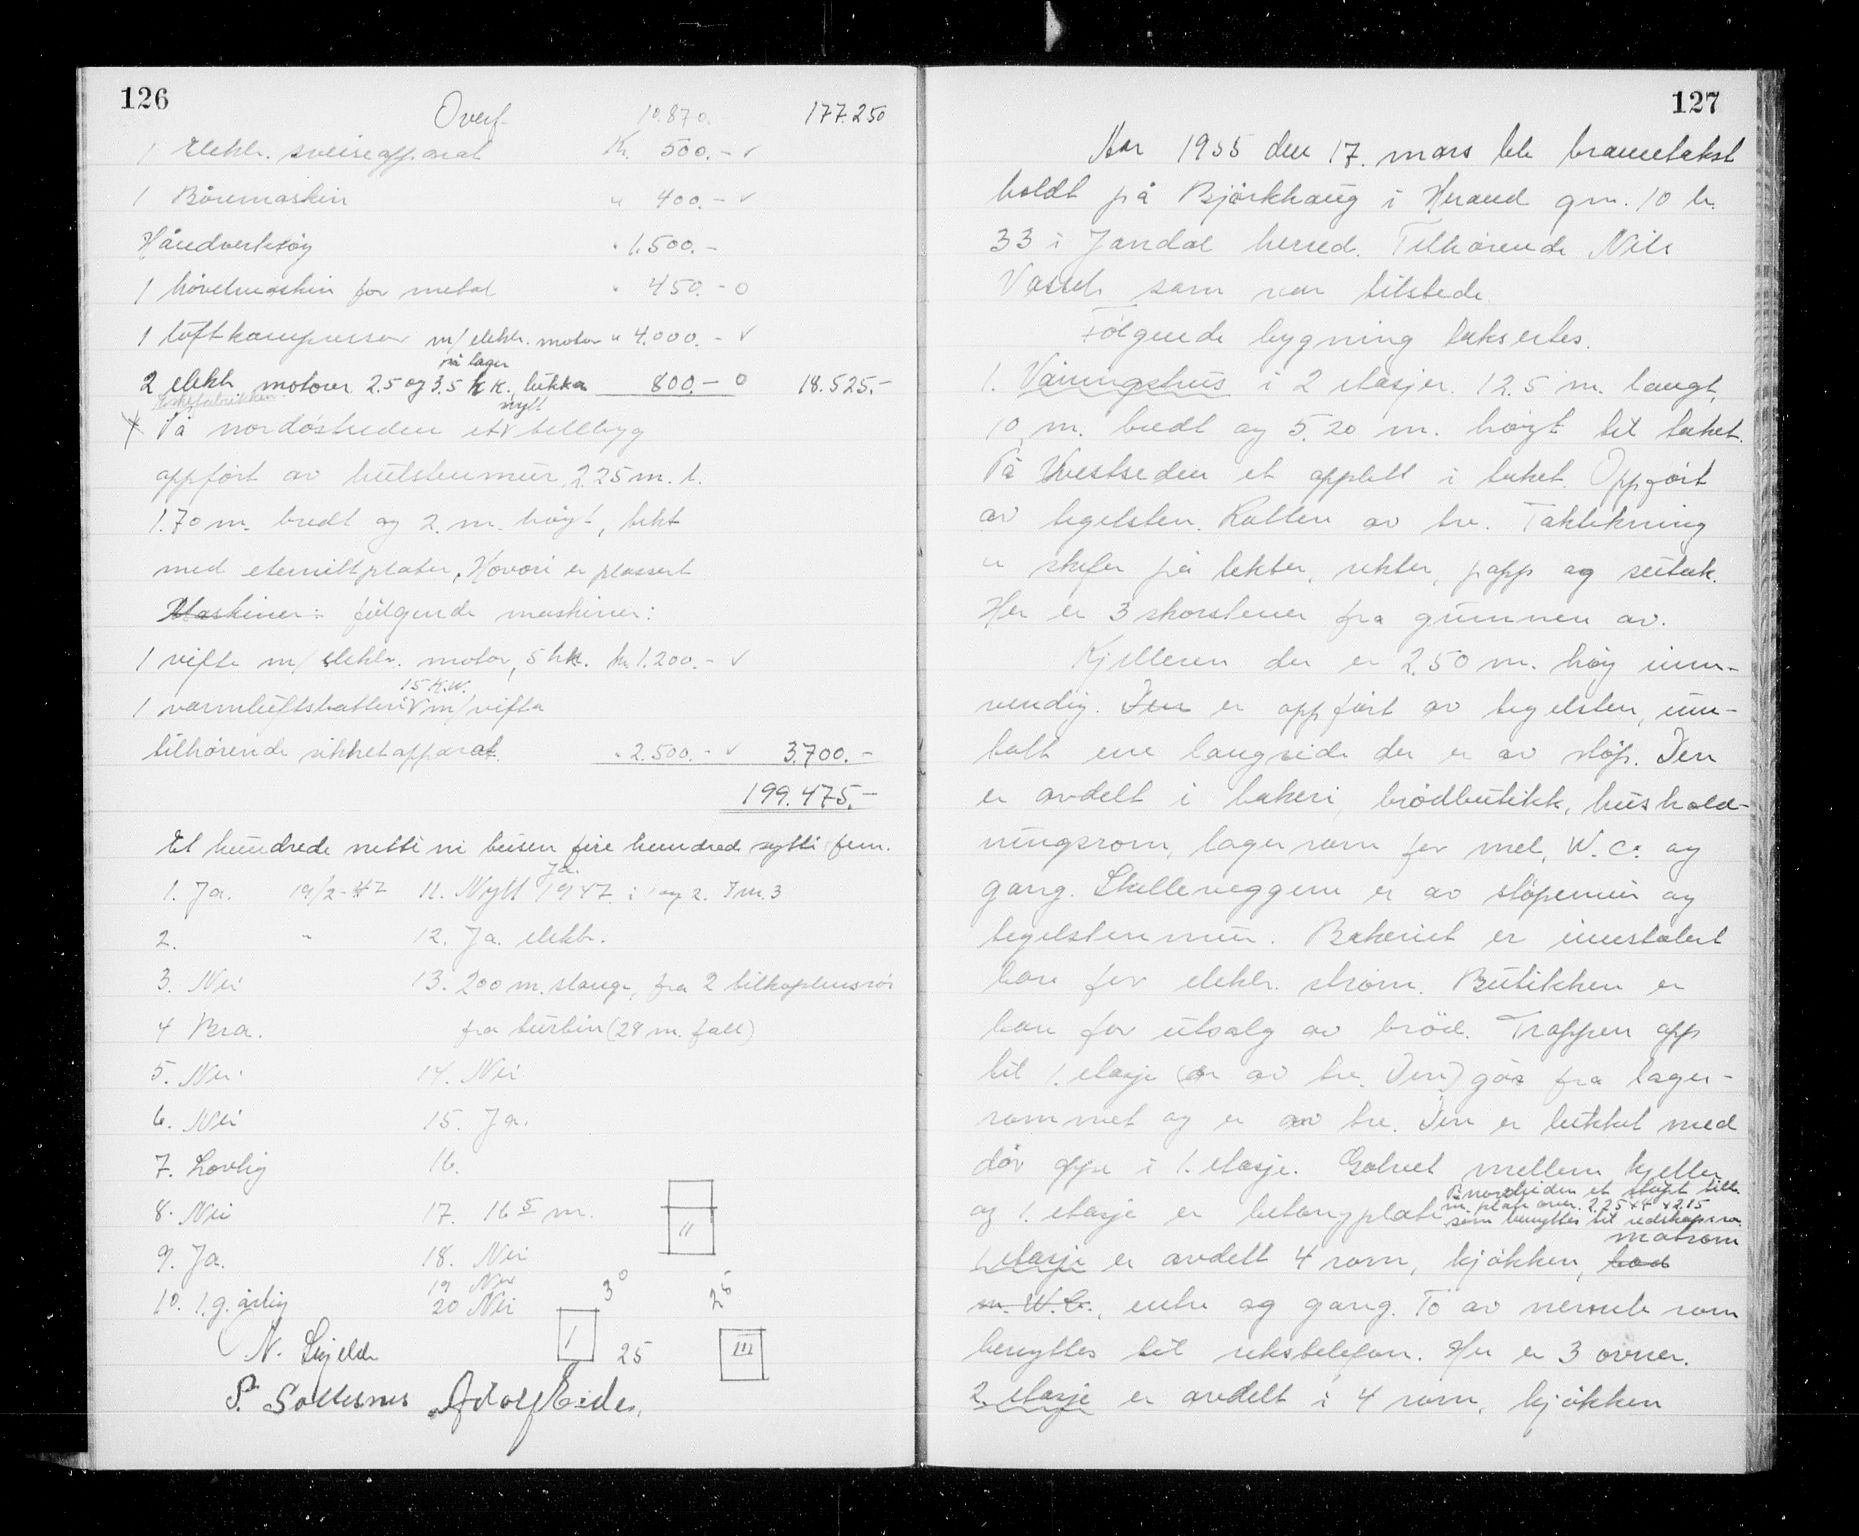 126
Overf. 10.870.- 177.250
1 Elektr. sveiseapparat Kr. 500.- ✓
1 Båremaskin " 400.- ✓
Håndverktøy " 1.500.-
1 høvelmaskin for metal " 450.- o
1 luftkompressor m/ elektr. motor " 4.000.- ✓
på lager
2 elektr. motorer 2.5 og 3.5 hk. 800.- o 18.525.-
På nordøstsiden et nytt tillbyg
oppført av hulstenmur, 2.25 m. l.
1.70 m. bredt og 2. m. høgt, tekt
med eternittplater. Hvori er plassert
Maskiner: følgende maskiner:
1 vifte m/ elektr. motor, 5 hk. kr. 1.200.- ✓
15 K.W.
1 varmluftsbatteri m/ vifte
tilhørende sikketapparat. " 2.500.- ✓ 3.700.-
199.475.-
Et hundrede nitti ni tusen fire hundred sytti fem.
1. Ja. 19/2-47 11. Nytt Ja. 1947. i 1 og 2. I m. 3
2. " 12. Ja. elektr.
3. Nei 13. 200 m. slange, fra 2 tilkoplensrør
4 Bra. fra turbin (28 m. fall)
5. Nei. 14. Nei
6. Nei 15. Ja.
7. Lovlig 16.
8. Nei 17. 16 5 m.
II
9. Ja. 18. Nei
19 Nei
10. 1. g. årlig 20 Nei
3 0
2 5
I 25 III
N. Skjelde
S. Solesnes Adolf Eide.
127
Aar 1955 den 17. mars ble brannetakst
holdt på Bjørkhaug i Herand gnr. 10 br.
33 i Jondal herred. Tilhørende Nils
Vassel som var tilstede.
Følgende bygning taksertes.
1. Våningshus i 2 etasjer. 12.5 m. langt,
10 m. bredt og 5.20 m. høgt til taket.
På Vestseden et opplett i taket. Oppført
av tegelsten. Rotten av tre. Taktekning
er skifer på lekter, rekter, papp og sutak.
Her er 3 skorstener fra grunnen av.
Kjelleren der er 2.50 m. høy inn-
vendig. Den er oppført av tegelsten, unn-
tatt ene langside der er av støp. Den
er avdelt i bakeri, brødbutikk, hushold-
ningsrom, lagerrom for mel, W.C. og
gang. Skilleveggene er av støpemur og
tegelstenmur. Bakeriet er innstalert
bare for elektr. strøm. Butikken er
bare for utsalg av brød. Trappen opp
til 1. etasje (er av tre. Den) går fra lager-
rommet og er av tre. Den er lukket med
dør oppe i 1. etasje. Golvet mellem kjeller
og 1. etasje er betongplate
På nordsiden et støpt tilb.
m. plate over. 2.25 x 4 x 2.15
som benyttes til redskapsro.
matrom
1. etasje er avdelt 4 rom, kjøkken, bad
m. W.C., entre og gang. To av nevnte rom
benyttes til rikstelefon. Her er 3 ovner.
2. etasje er avdelt i 4 rom, kjøkken